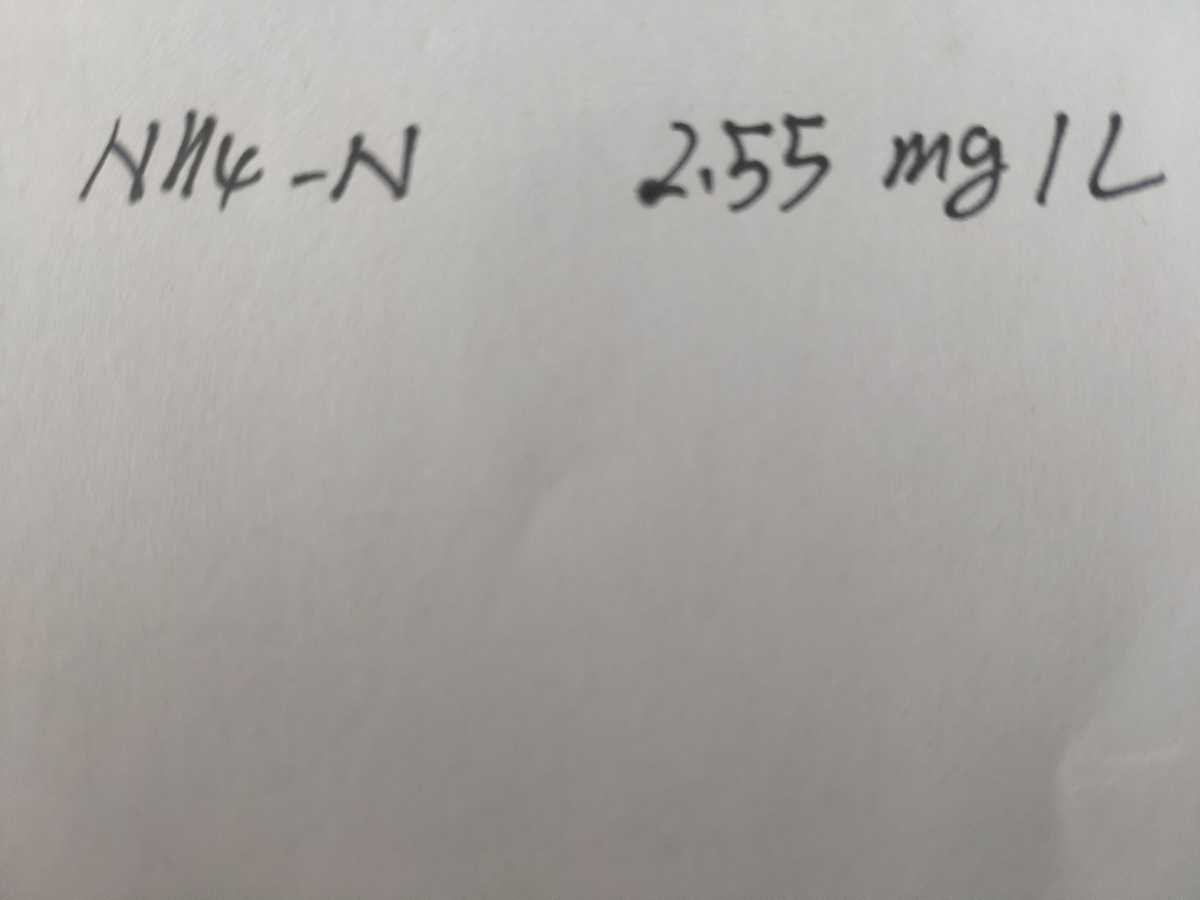 NH4-N 2.55 mg/L